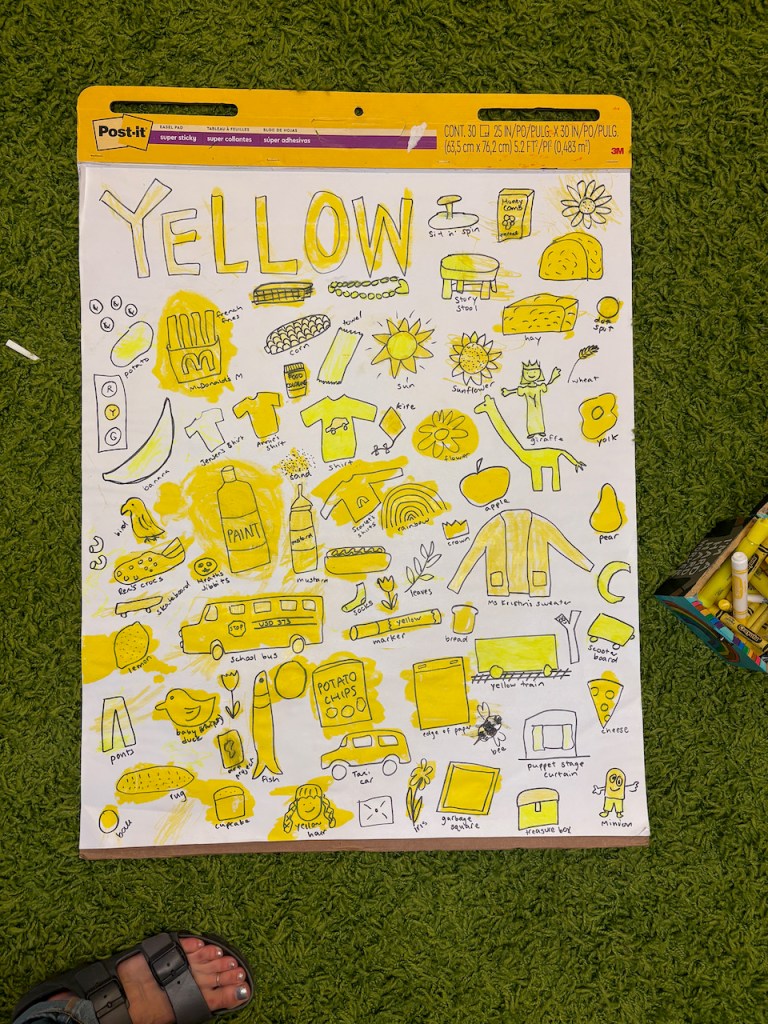 Post-it
EASEL PAD
super sticky
TABLEAU À FEUILLES
super collantes
BLOC DE HOJAS
súper adhesivas
CONT. 30 25 IN/PO/PULG. X 30 IN/PO/PULG.
(63,5 cm x 76,2 cm) 5.2 FT²/PI² (0,483 m²)
3M
YELLOW
Sit n' spin
Honey
Comb
Story
Stool
hay
dot
spot
french
fries
McDonalds M
corn
towel
sun
sunflower
wheat
potato
R
Y
G
banana
Jensen's shirt
Annie's
shirt
shirt
kite
flower
giraffe
yolk
sand
bird
PAINT
mustard
shirts
rainbow
apple
crown
pear
Ben's crocs
jibbits
mustard
skateboard
socks
leaves
Ms Kristin's sweater
lemon
STOP
school bus
yellow
marker
bread
yellow train
scooter
board
pants
baby
duck
fish
POTATO
CHIPS
edge of paper
bee
cheese
puppet stage
curtain
art
project
Taxi
car
rug
ball
cupcake
yellow
hair
garbage
square
treasure box
Minion